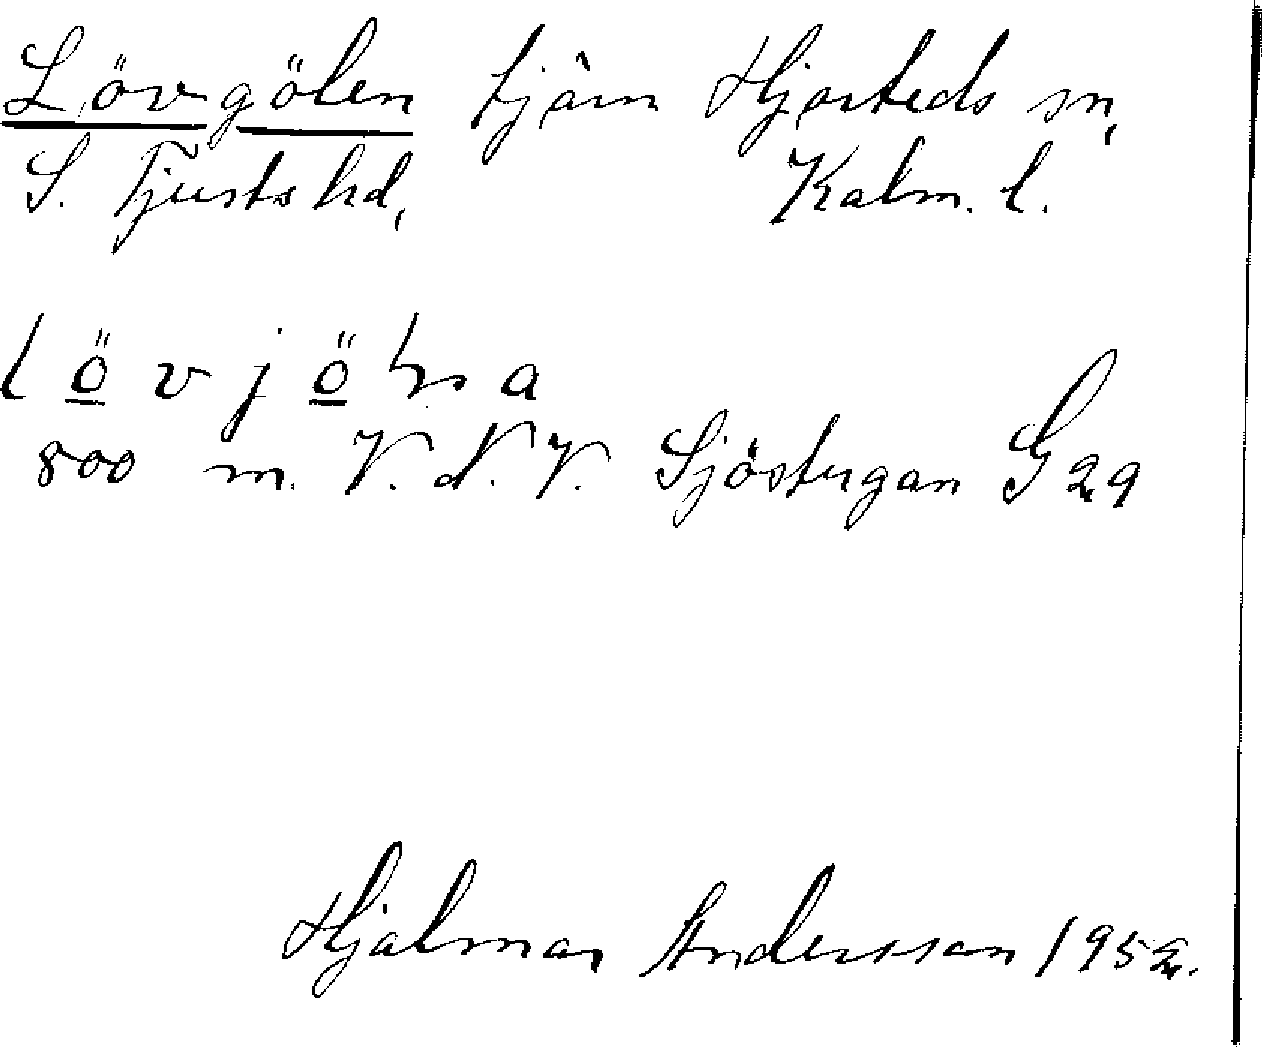 Lövgölen tjärn Hjorteds sn,
S. Tjusts hd, Kalm. l.
l ö v j ö l n a
800 m. V. N. V. Sjöstugan G 29
Hjalmar Andersson 1952.